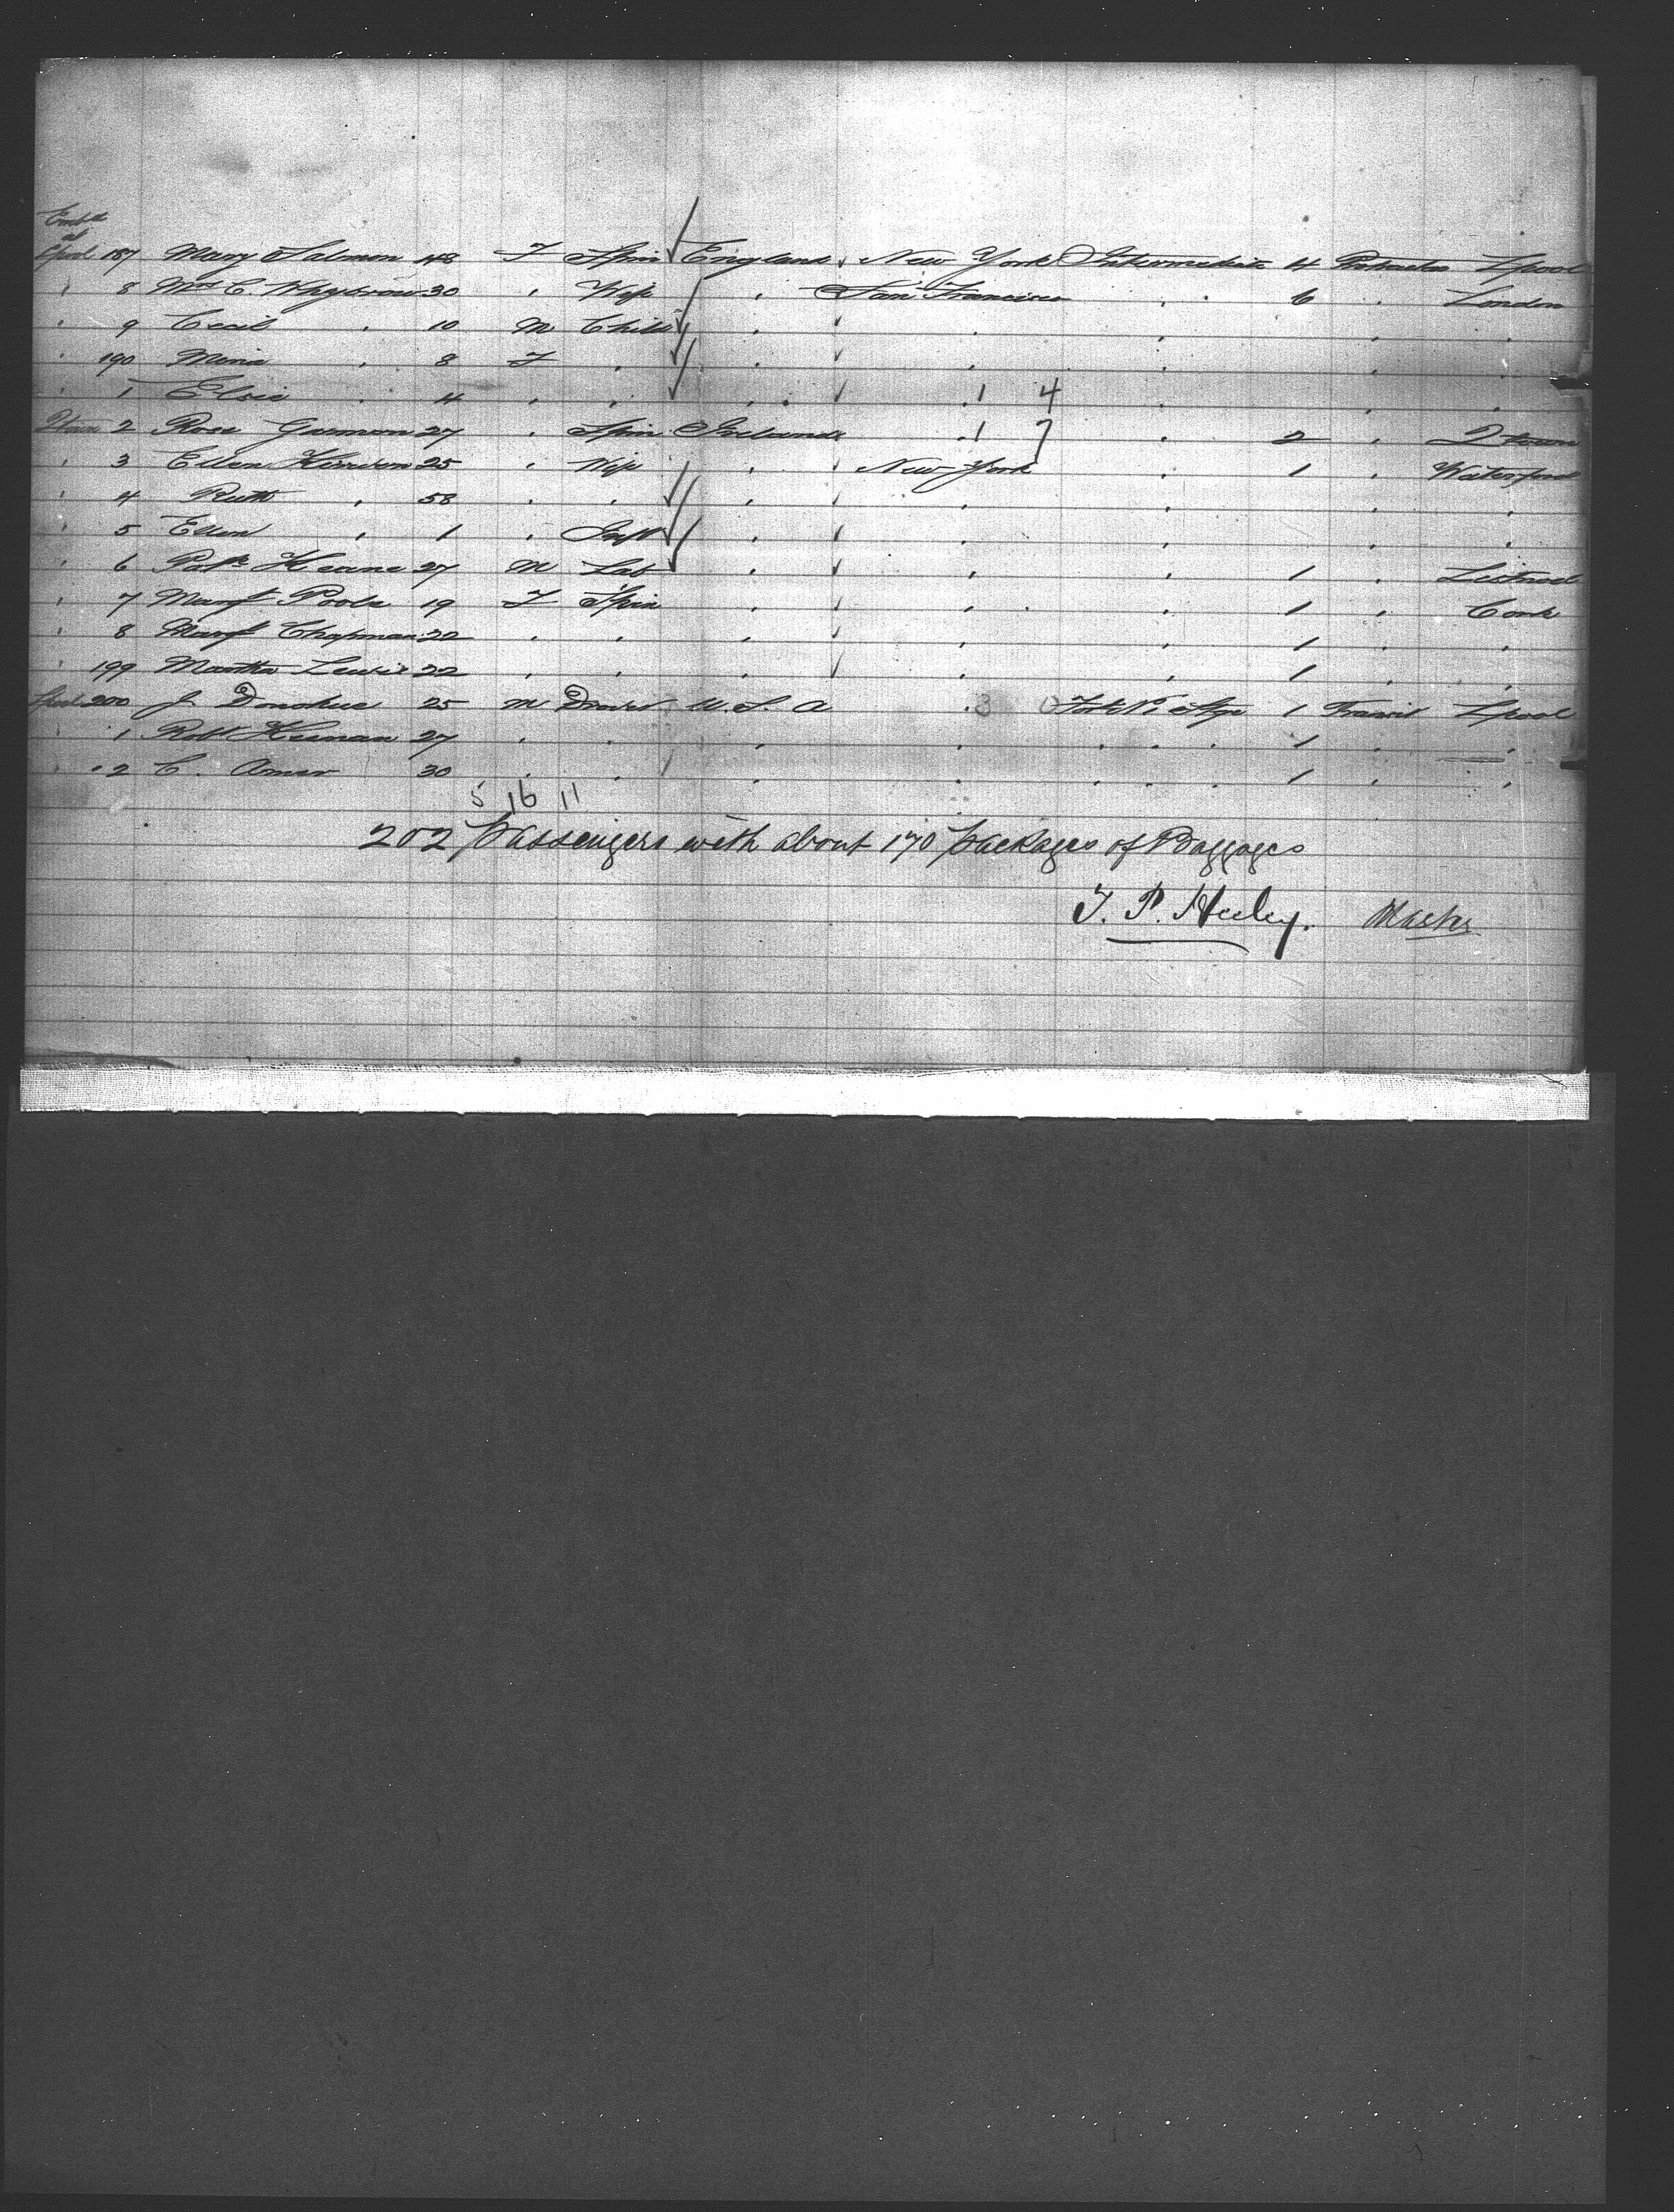 Embd
at
Lpool 187 Mary Salmon 48 F Spin England New York Intermediate 4 Protracted Lpool
" 8 Mrs C. Whybrow 30 " Wife " San Francisco " " 6 " London
" 9 Cecil " 10 M Child " " " " "
" 190 Minia " 8 F " " " " " "
" 1 Elsie " 4 " " " " 1 4 " " "
2town 2 Rose Garmon 27 " Spin Ireland " 1 7 " 2 " Qtown
" 3 Ellen 25 " Wife " New York " 1 " Waterford
" 4 Ruth " 58 " " " " " " "
" 5 Ellen " 1 " Inft " " " " "
" 6 Patk Keane 27 M Lab " " " 1 " Listowel
" 7 Margt Poole 19 F Spin " " " 1 " Cork
" 8 Margt Chapman 22 " " " " " 1 " "
" 199 Martha Lewis 22 " " " " " 1 " "
Lpool 200 J. Donohue 25 M U.S.A " 3 0 Stge 1 Transit Lpool
" 1 Robt Keenan 27 " " " " " " " 1 " "
" 2 C. Amar 30 " " " " " " " 1 " "
5 16 11
202 Passengers with about 170 packages of Baggages
T. P. Heeley. Master